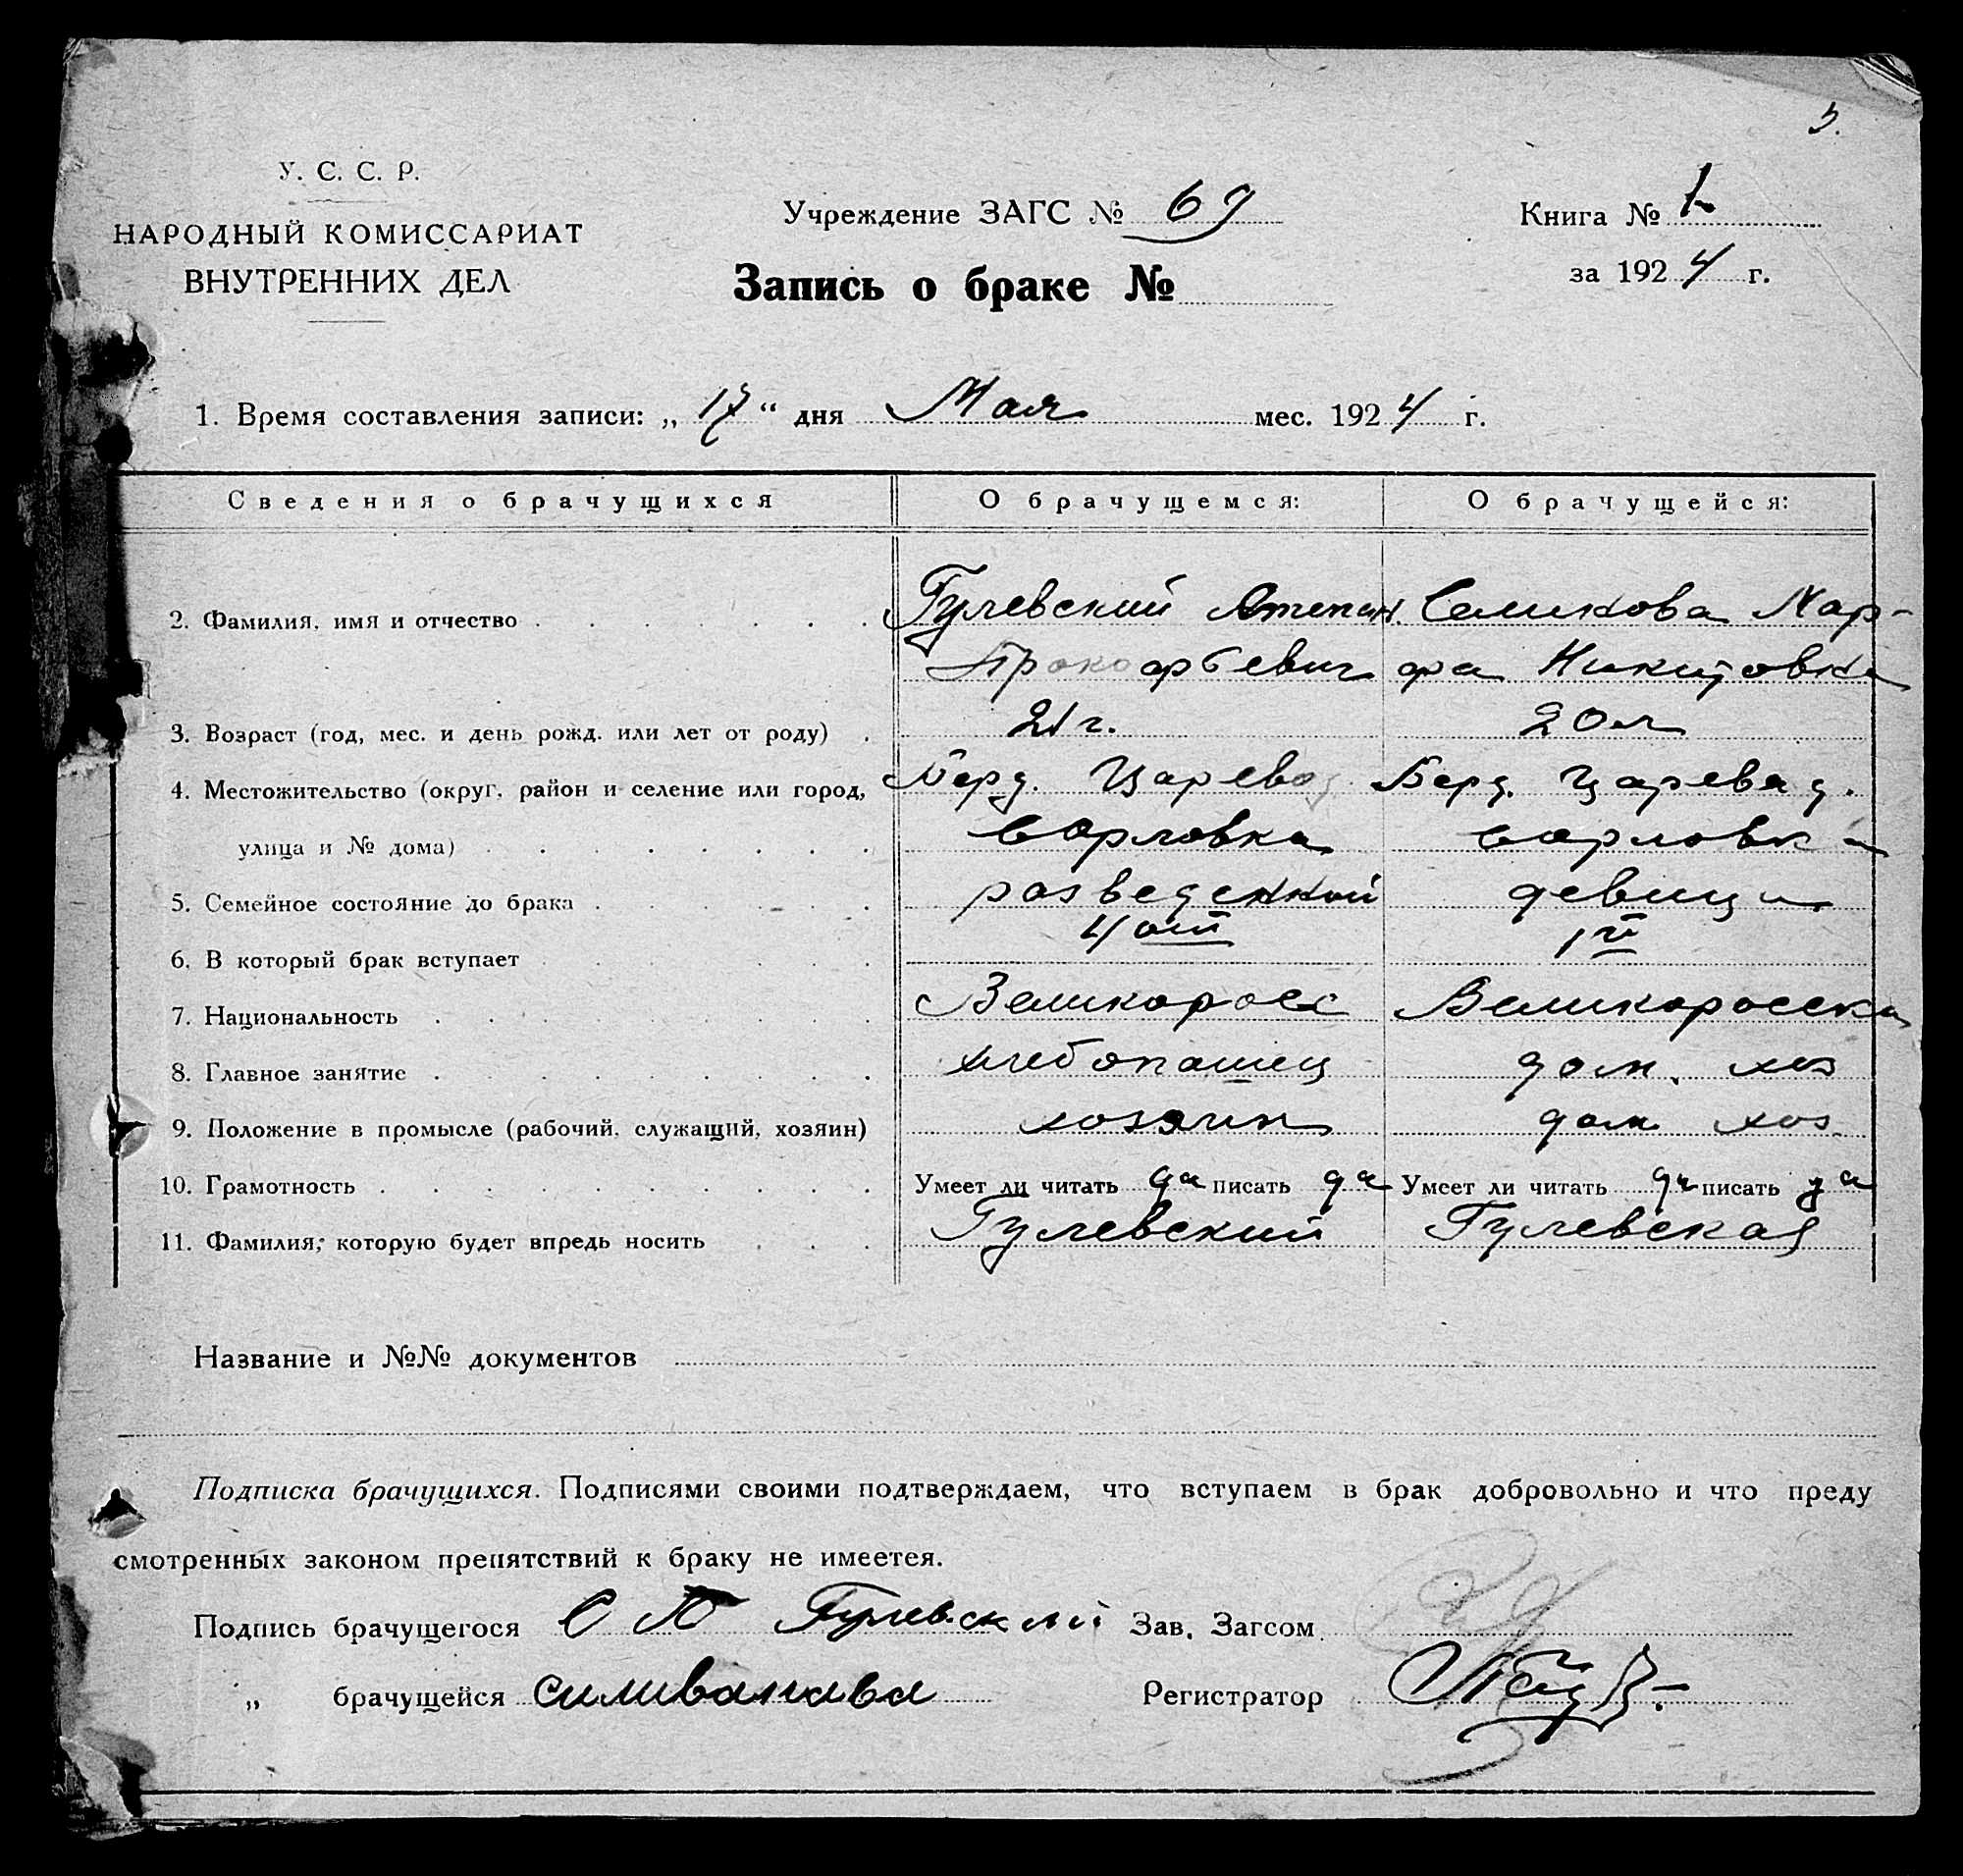 5.
У. С. С. Р.
НАРОДНЫЙ КОМИССАРИАТ
ВНУТРЕННИХ ДЕЛ
Учреждение ЗАГС № 69
Запись о браке №
Книга № 1
за 1924 г.
1. Время составления записи: „ 17 “ дня Мая мес. 1924 г.
Сведения о брачущихся О брачущемся: О брачущейся:
2. Фамилия, имя и отчество Гулевский Степан Селикова Мар-
Прокофьевич фа Никитовна
3. Возраст (год, мес. и день рожд. или лет от роду) 21 г. 20 л
4. Местожительство (округ, район и селение или город, Берд. Царевод. Берд. Царевод.
улица и № дома) с Орловка с Орловка
5. Семейное состояние до брака разведенный девица
6. В который брак вступает 4 ый 1 й
7. Национальность Великоросс Великоросска
8. Главное занятие хлебопашец дом. хоз
9. Положение в промысле (рабочий, служащий, хозяин) хозяин дом. хоз.
10. Грамотность Умеет ли читать да писать да Умеет ли читать да писать да
11. Фамилия, которую будет впредь носить Гулевский Гулевская
Название и №№ документов
Подписка брачущихся. Подписями своими подтверждаем, что вступаем в брак добровольно и что преду
смотренных законом препятствий к браку не имеетея.
Подпись брачущегося С П Гулевский Зав. Загсом
„ брачущейся Силиванава Регистратор